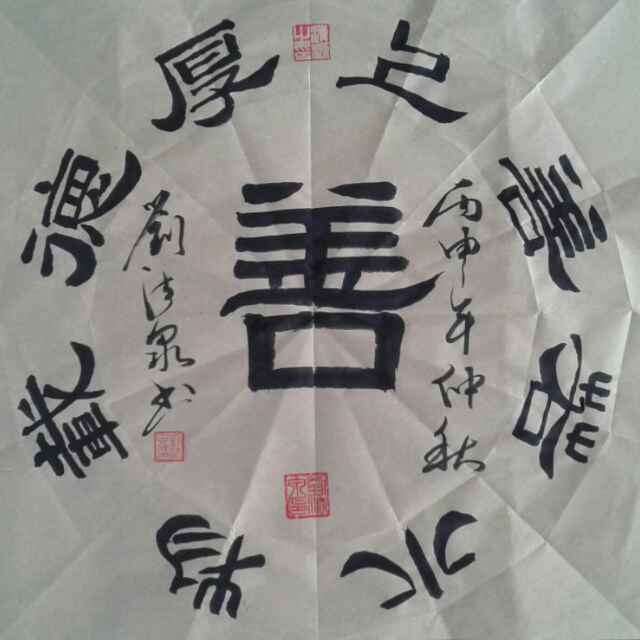 上善若水
厚德載物
善
丙申年仲秋
劉 泉书